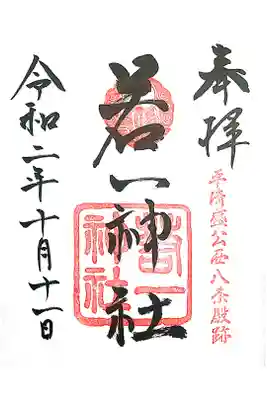 奉拝
平清盛公西八条殿跡
若一神社
若一神社
令和二年十月十一日